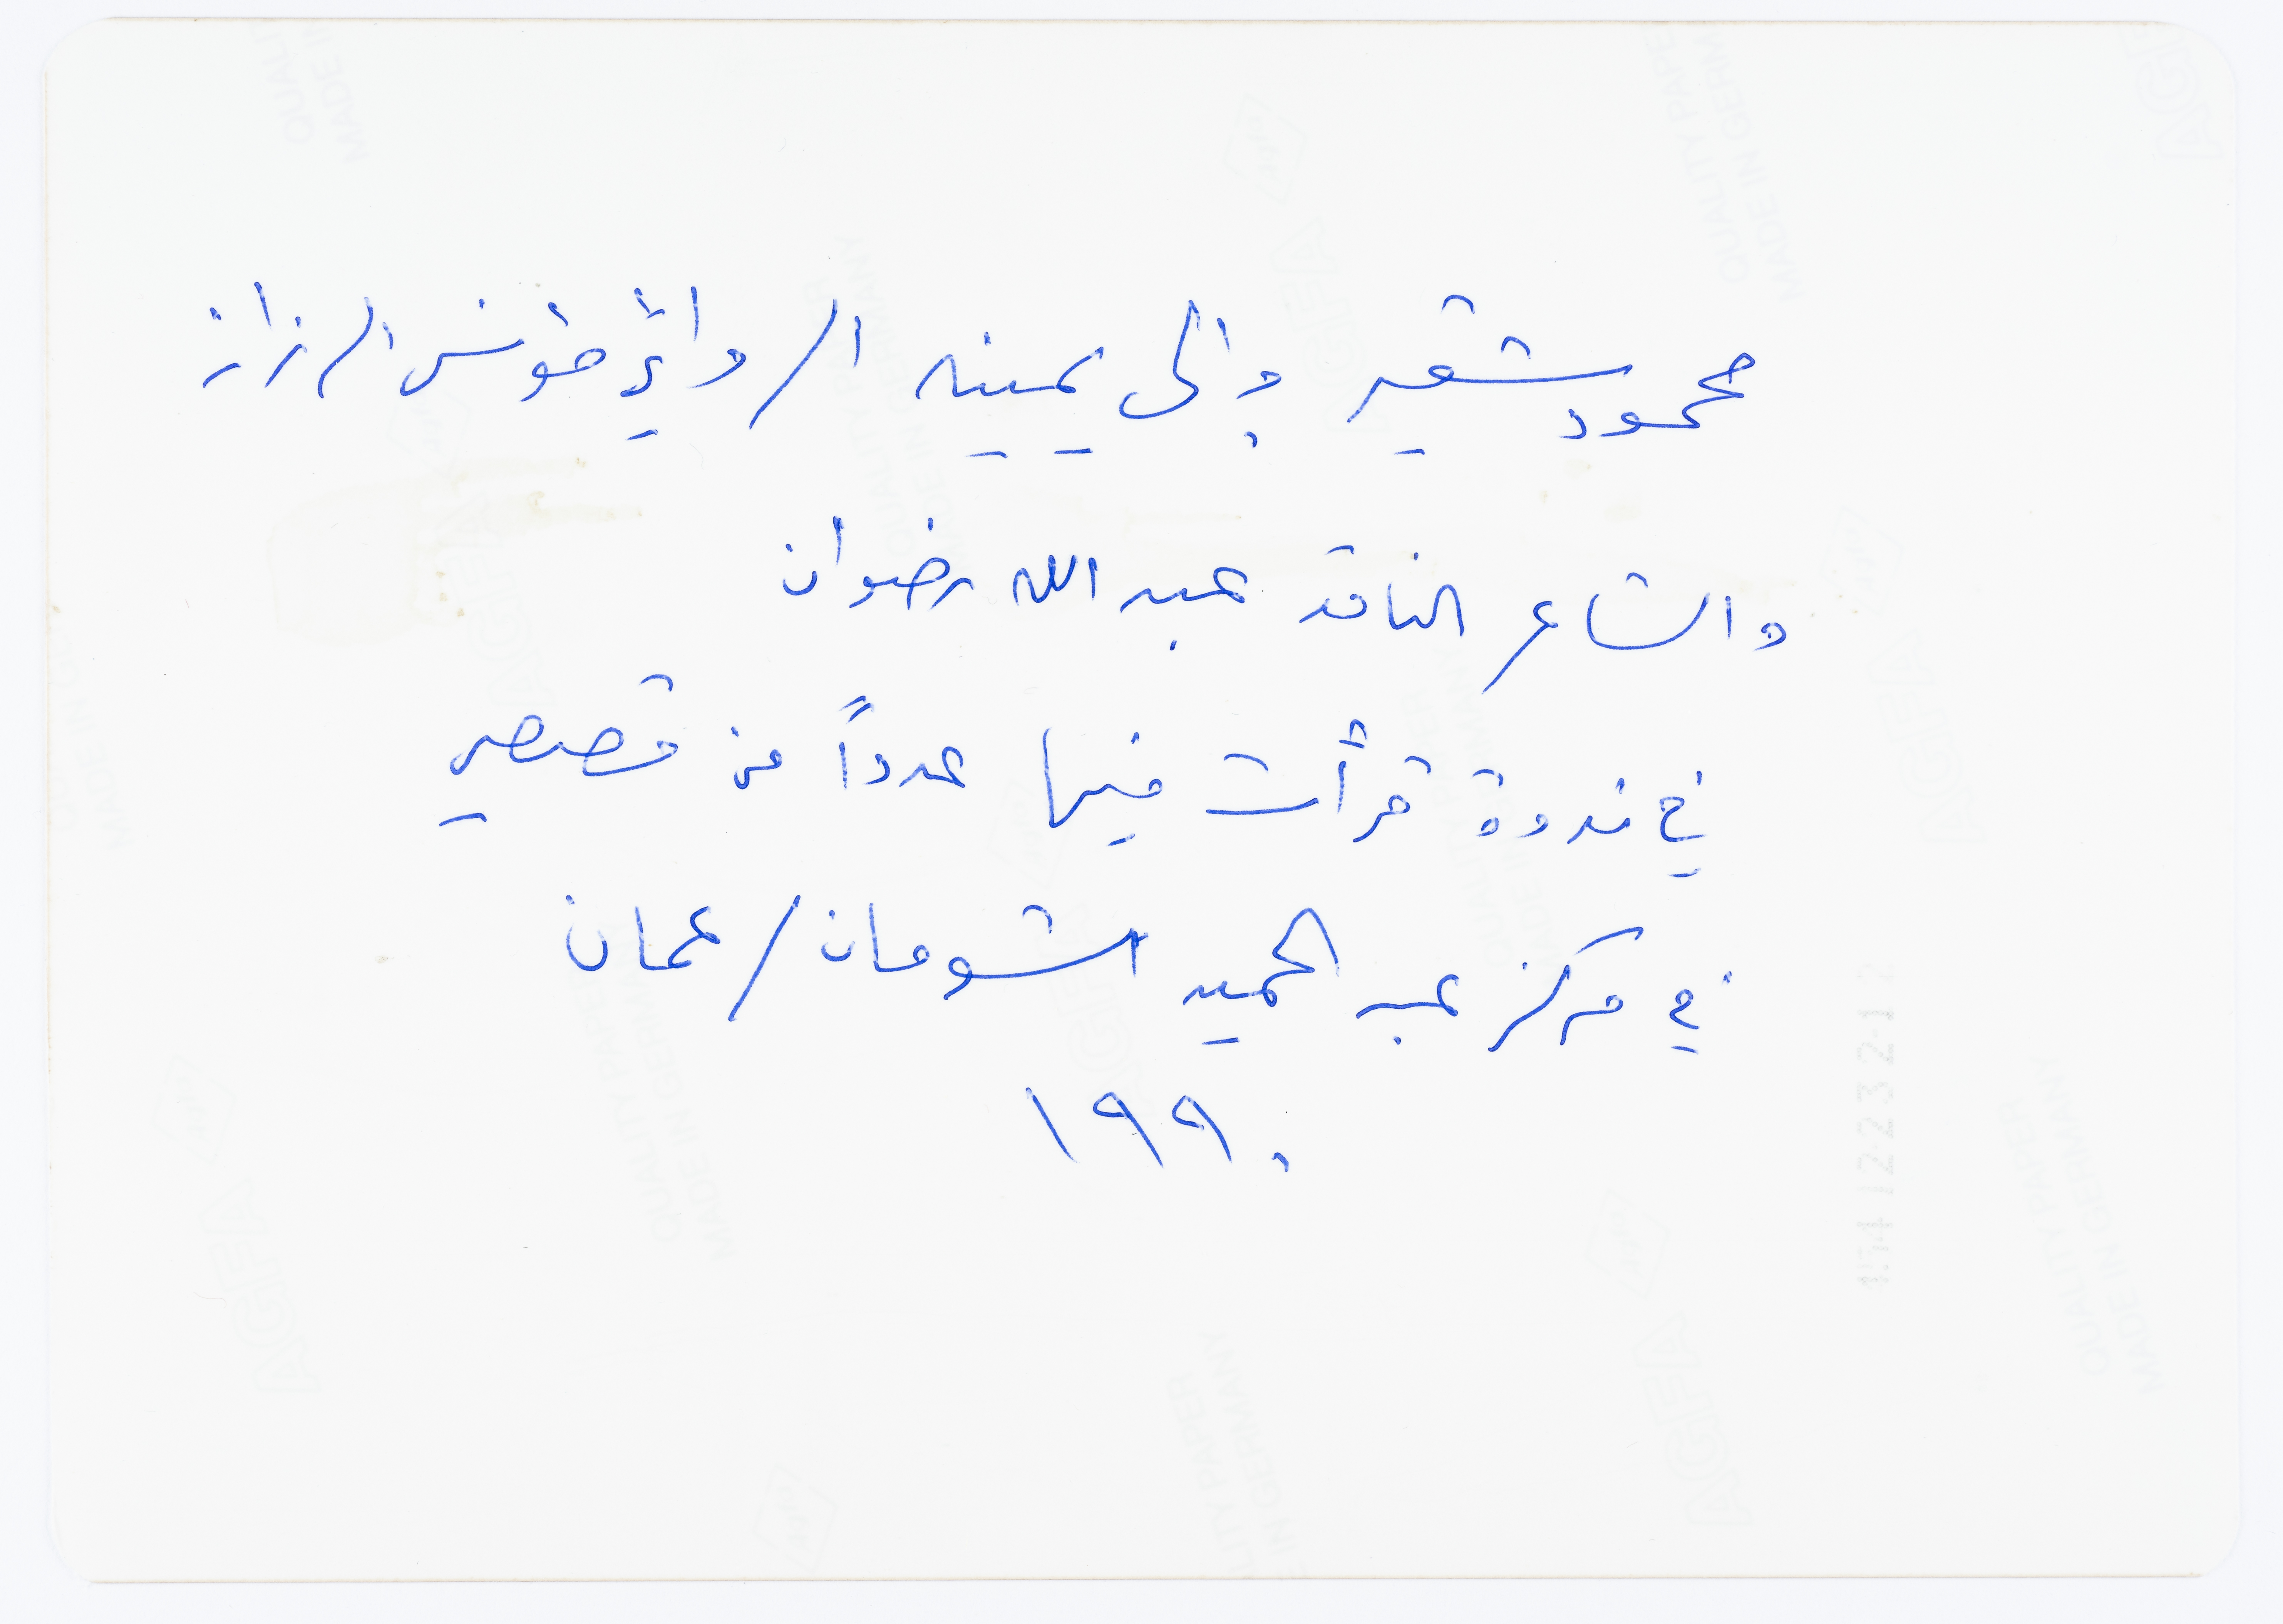 محمود شقير وإلى يمينه الروائي مؤنس الرزاز
والشاعر الناقد عبد الله رضوان
في ندوة قرأت فيها عدداً من قصصي
في مركز عبد الحميد شومان / عمان
١٩٩٠
AGFA
QUALITY PAPER
MADE IN GERMANY